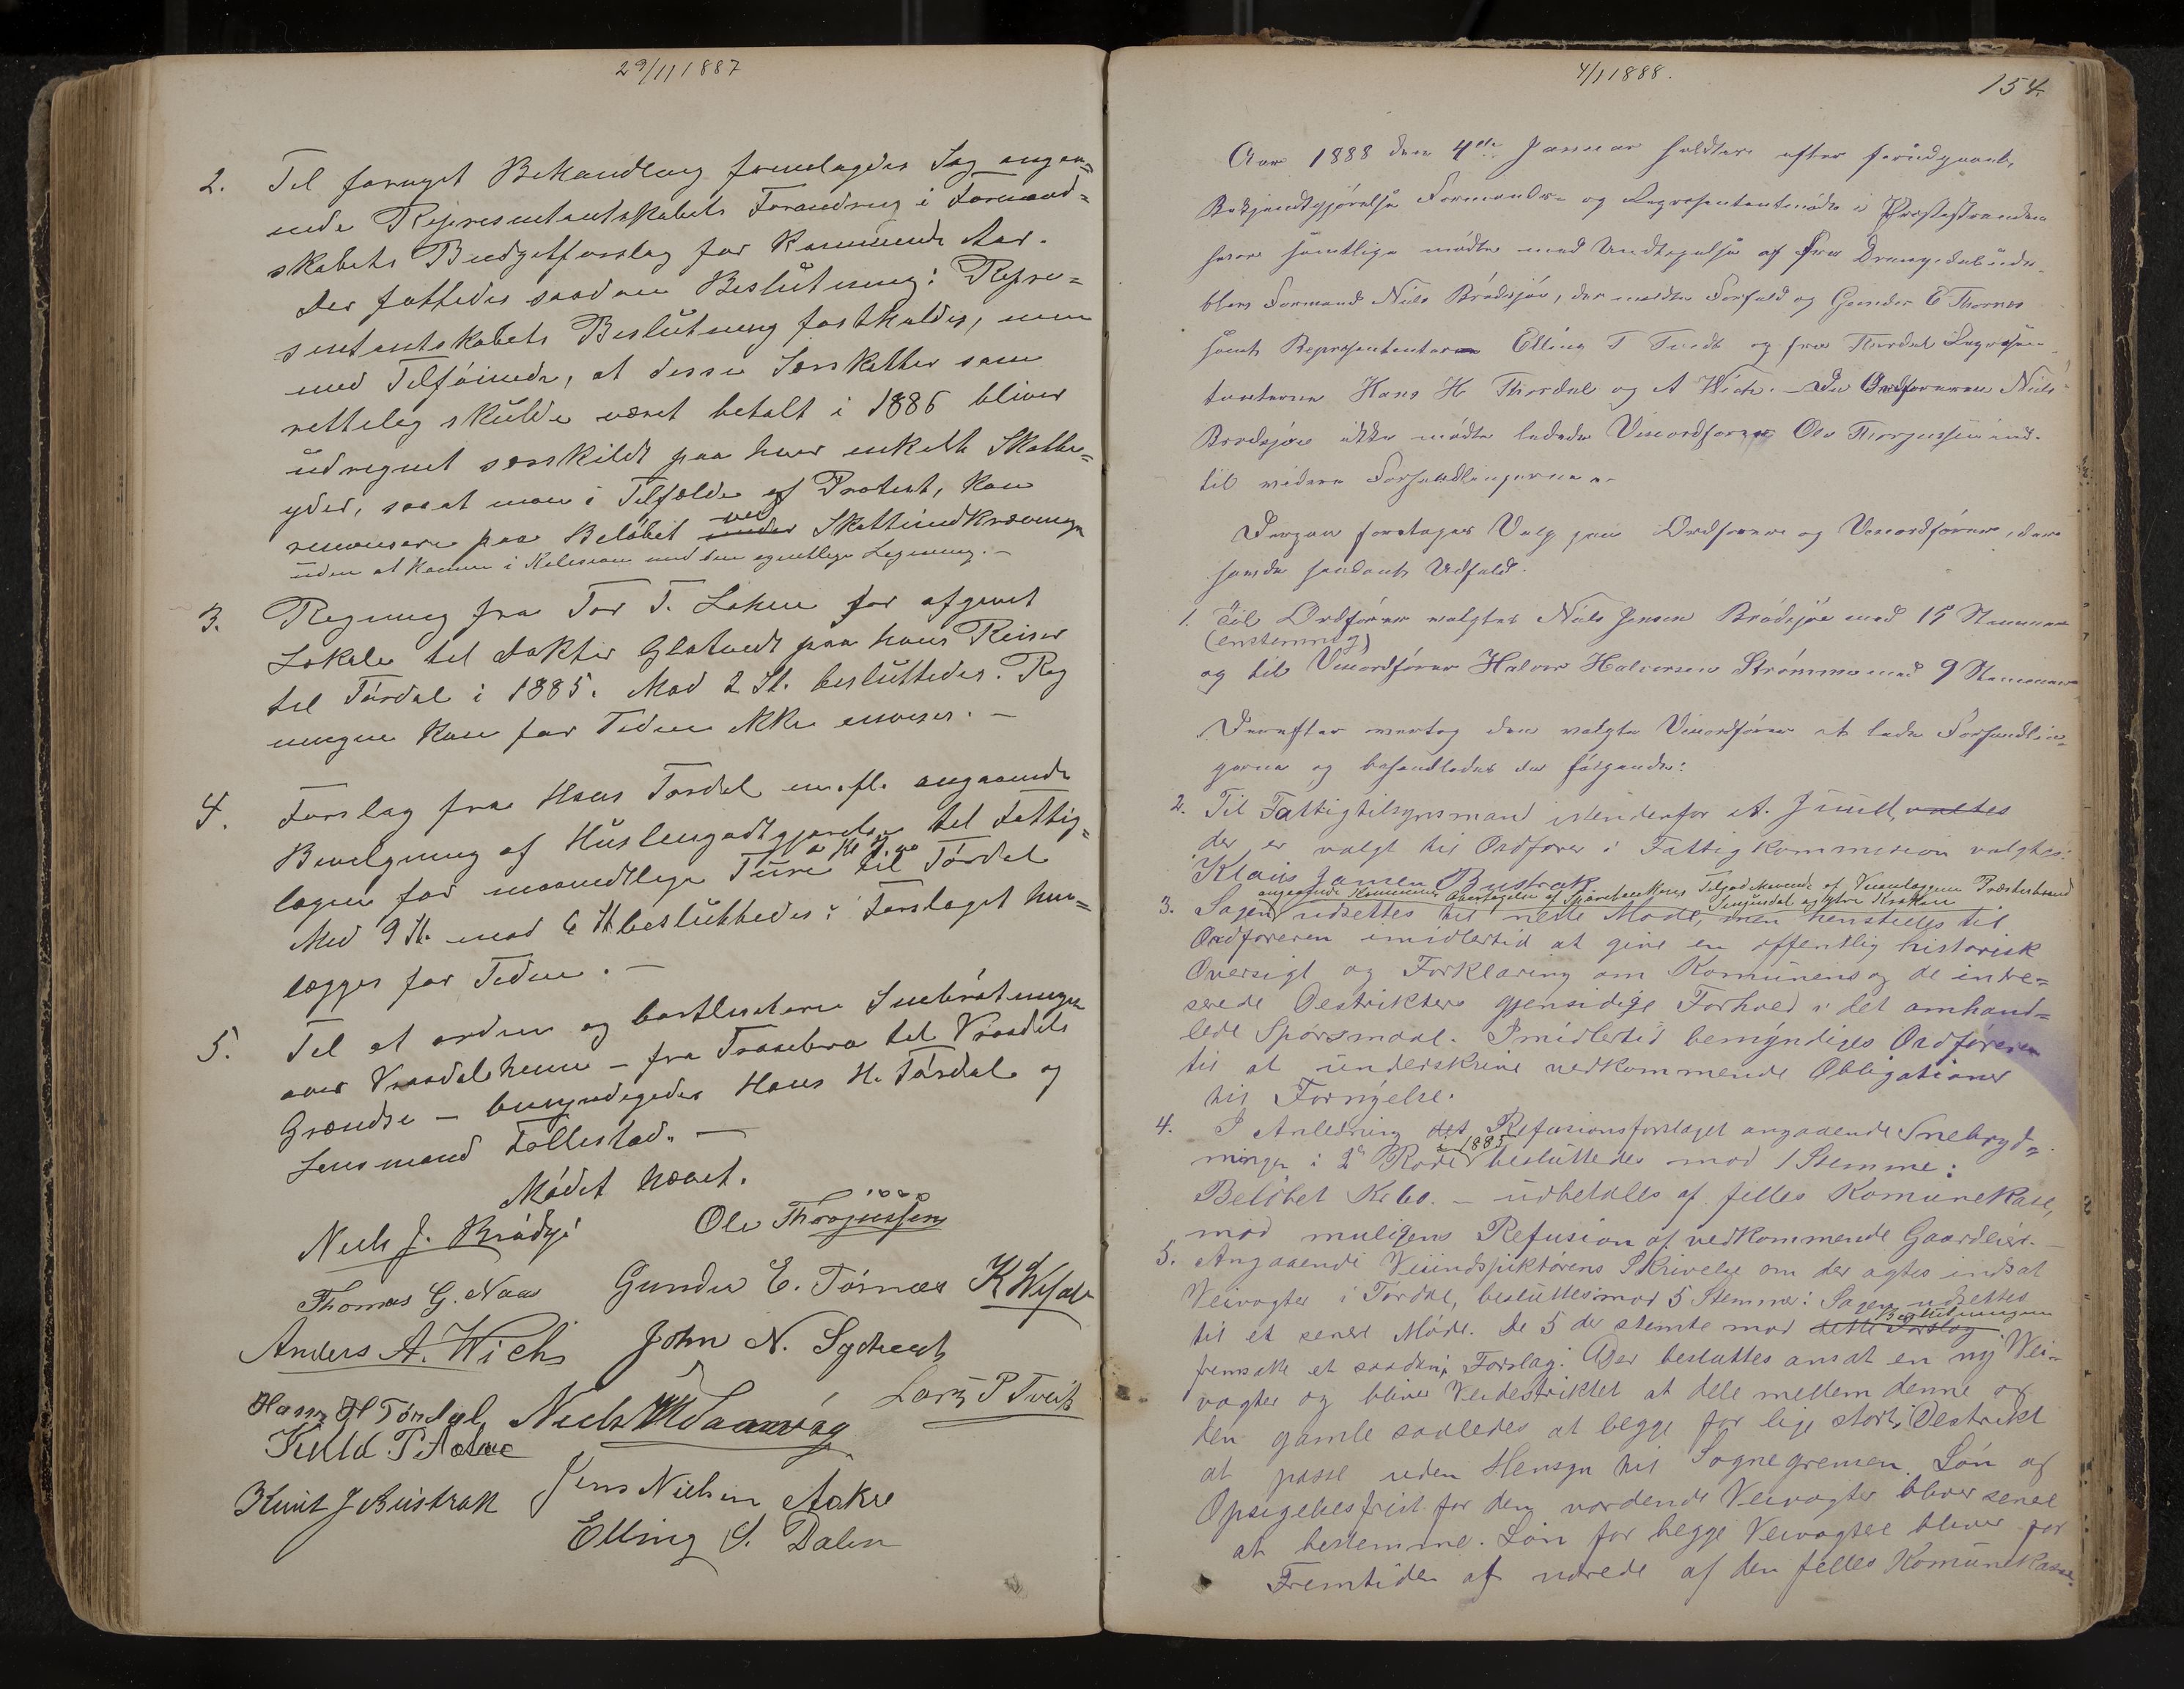 29/11 1887
2. Til fornyet Behandling foredagdes Sag angaa=
ende Representantskabets Forandring i Formand=
skabets Budgetforslag for kommende Aar.
Der fattedes saadan Beslutning: Repre=
sentantskabets Beslutning fastholdes, men
med Tilføiende, at disse Særskatter som
rettelig skulde været betalt i 1886 bliver
udregnet særskildt paa hver enkelt Skatte=
yder, saaat man i Tilfælde af Protest, kan
renonsere paa Beløbet under ved Skatteindkrævningen
uden at komme i Kolision med den egentlige Ligning. –
3. Regning fra Tor T. Lohne for afgivet
Lokale til Doktor Glatvedt paa hans Reiser
til Tørdal i 1885. Mod 2 St. besluttedes. Reg
ningen kan for Tiden ikke anvises. –
4. Forslag fra Hans Tørdal m.fl. angaaende
Bevilgning af Huslengodtgjørelse til Fattig=
lægen for maanedlige Ture til Tørdal
Med 9 St. mod 6 St. besluttedes: Forslaget hen=
lægges for Tiden. –
5. Til at ordne og bortlicitere Snebrøtningen
over Vraadalsheien – fra Trasebro til Vraadals
Grændse – bemyndigedes Hans H. Tørdal og
Lensmand Tollestad. –
Mødet hævet.
Niels J. Brødsjø Ole Thorjussen
Thomas G. Naas Gunder E. Tørnæs K Wefald
Anders A. Wiehs John N. Sydtvedt
Hans H Tørdal, Niels Lars P Tveit
P
Knut J Bustrak Jens Nielsen Aakre
Elling S. Dalen
4/1 1888. 154.
Aar 1888 den 4de Januar holdtes efter foregaaende
Bekjendtgjørelse Formands- og Representantmøde i Præstestranden
hvor samtlige mødte med Undtagelse af fra Drangedals
Formand Niels Brødsjøe, der meldte Forfald og Gunder E Thornes
samt Representanterne Elling T Tvedt og fra Tørdal Represen
tanterne Hans H. Thordal og A Wiehs. – Da Ordføreren Niels
Brødsjøe ikke mødte ledede Viceordfører Ole Thorjussen ind-
til videre Forhandlingerne. –
Dernæst foretages Valg paa Ordfører og Viceordfører, der
havde saadant Udfald.
1. Til Ordfører valgtes Niels Jensen Brødsjøe med 15 Stemmer
(enstemmig)
og til Viceordfører Halvor Halvorsen Strømme med 9 Stemmer
Derefter overtog den valgte Viceordfører at lede Forhandlin=
gerne og behandledes der følgende:
2. Til Fattigtilsynsmand istendenfor A. Juvet, valtes
der er valgt til Ordfører i Fattigkommision valgtes:
Klaus Jansen Bustrak
angaaende Kommunens Overtagelse af Sparebankens Tilgodehavende af Veianlæggene Præstestrand
3. Sagen udsettes til neste Møde, men henstilles til
Ordføreren imidlertid at give en offentlig historisk
Oversigt og Forklaring om Komunens og de intre=
serede Destrikters gjensidige Forhold i det omhand=
lede Spørsmaal. Imidlertid bemyndiges Ordføreren
til at underskrive vedkommende Obligationer
til Fornyelse.
4. I Anledning det Refusionsforslaget angaaende Snebryd=
ninger i 2n Rode i 1885 besluttedes mod 1 Stemme:
Beløbet Kr 60. – udbetales af felles Komunekase,
mod muligens Refusion af vedkommende Gaardeier. –
5. Angaaende Veiindspiktørens Skrivelse om der agtes indsat
Veivogter i Tørdal, besluttes mod 5 Stemmer: Sagen udsettes
til et senere Møde. De 5 der stemte mod dette Forslag Beslutningen
fremsatte et saadan Forslag: Der besluttes ansat en ny Vei-
vogter og bliver Veidestriktet at dele mellem denne og
den gamle saaledes at begge for lige stort Destrikt
at passe uden Hensyn til Sognegrensen. Løn og
Opsigelsesfrist for den vordende Veivogter bliver senere
at bestemme. Løn for begge Veivogtere bliver for
Fremtiden at udrede af den felles Komunekasse.